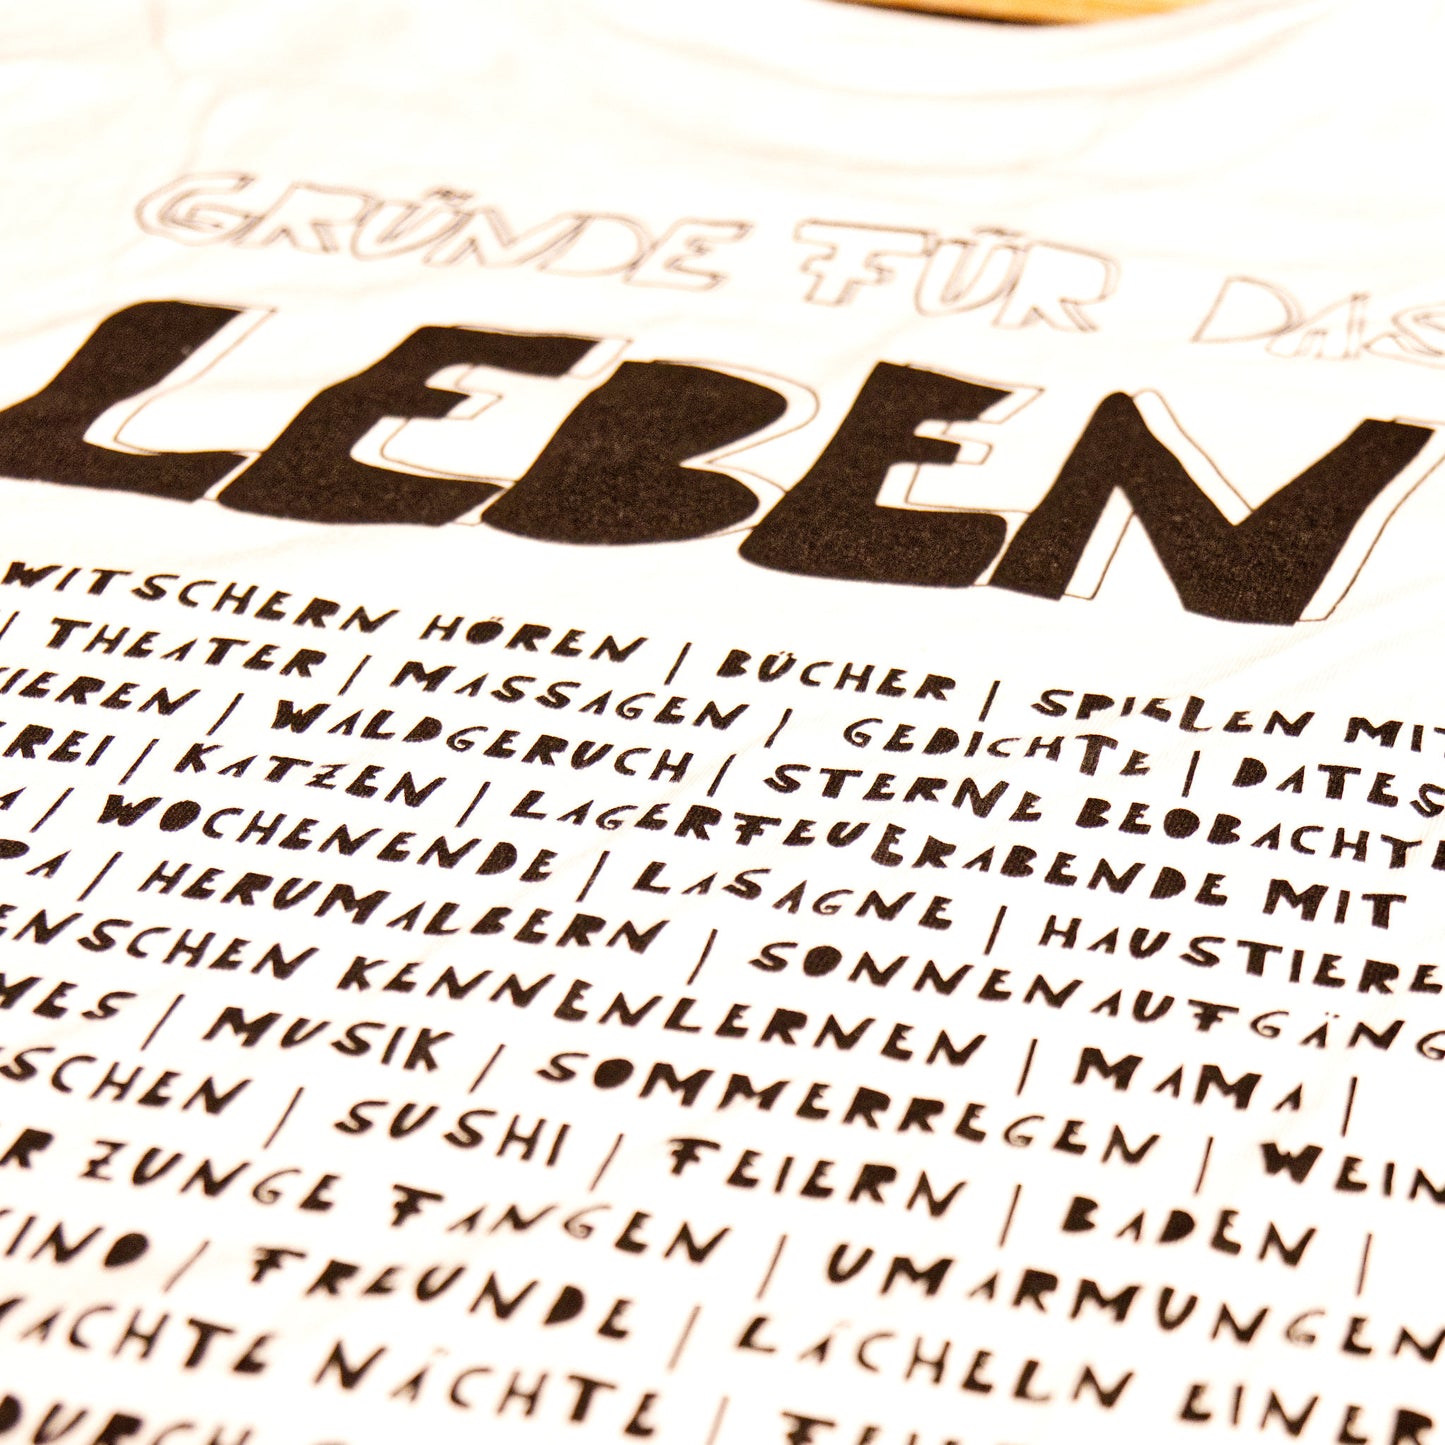 GRÜNDE FÜR DAS
LEBEN
WITSCHERN HÖREN | BÜCHER | SPIELEN MIT
| THEATER | MASSAGEN | GEDICHTE | DATES
IEREN | WALDGERUCH | STERNE BEOBACHTE
REI | KATZEN | LAGERFEUERABENDE MIT
A | WOCHENENDE | LASAGNE | HAUSTIERE
PA | HERUMALBERN | SONNENAUFGÄNG
ENSCHEN KENNENLERNEN | MAMA |
MES | MUSIK | SOMMERREGEN | WEIN
SCHEN | SUSHI | FEIERN | BADEN |
R ZUNGE FANGEN | UMARMUNGEN
KINO | FREUNDE | LÄCHELN EINER
ACHTE NÄCHTE |
DURCH